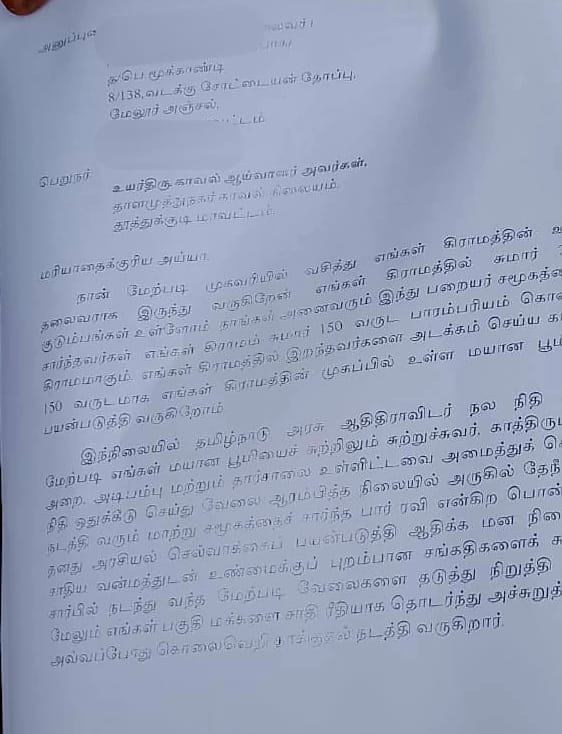 அனுப்புந
த/பெ மூக்காண்டி
8/138, வடக்கு சோட்டையன் தோப்பு,
மேலூர் அஞ்சல்,
பெறுநர்
உயர்திரு காவல் ஆய்வாளர் அவர்கள்,
தாளமுத்துநகர் காவல் நிலையம்.
தூத்துக்குடி மாவட்டம்.
மரியாதைக்குரிய அய்யா,
நான் மேற்படி முகவரியில் வசித்து எங்கள் கிராமத்தின் ஊ
தலைவராக இருந்து வருகிறேன் எங்கள் கிராமத்தில் சுமார்
குடும்பங்கள் உள்ளோம் நாங்கள் அனைவரும் இந்து பறையர் சமூகத்தை
சார்ந்தவர்கள் எங்கள் கிராமம் சுமார் 150 வருட பாரம்பரியம் கொ
கிராமமாகும். எங்கள் கிராமத்தில் இறந்தவர்களை அடக்கம் செய்ய க
150 வருடமாக எங்கள் கிராமத்தின் முகப்பில் உள்ள மயான பூமி
பயன்படுத்தி வருகிறோம்
இந்நிலையில் தமிழ்நாடு அரசு ஆதிதிராவிடர் நல நிதி
மேற்படி எங்கள் மயான பூமியைச் சுற்றிலும் சுற்றுச்சுவர், காத்திருப
அறை, அடிபம்பு மற்றும் தார்சாலை உள்ளிட்டவை அமைத்துக் செ
நிதி ஒதுக்கீடு செய்து வேலை ஆரம்பித்த நிலையில் அருகில் தேநீ
நடத்தி வரும் மாற்று சமூகத்தைச் சார்ந்த பார் ரவி என்கிற பொன்
தனது அரசியல் செல்வாக்கைப் பயன்படுத்தி ஆதிக்க மன நிலை
சாதிய வன்மத்துடன் உண்மைக்குப் புறம்பான சங்கதிகளைக் கூ
சார்பில் நடந்து வந்த மேற்படி வேலைகளை தடுத்து நிறுத்தி
மேலும் எங்கள் பகுதி மக்களை சாதி ரீதியாக தொடர்ந்து அச்சுறுத்
அவ்வப்போது கொலைவெறி தாக்குதல் நடத்தி வருகிறார்.